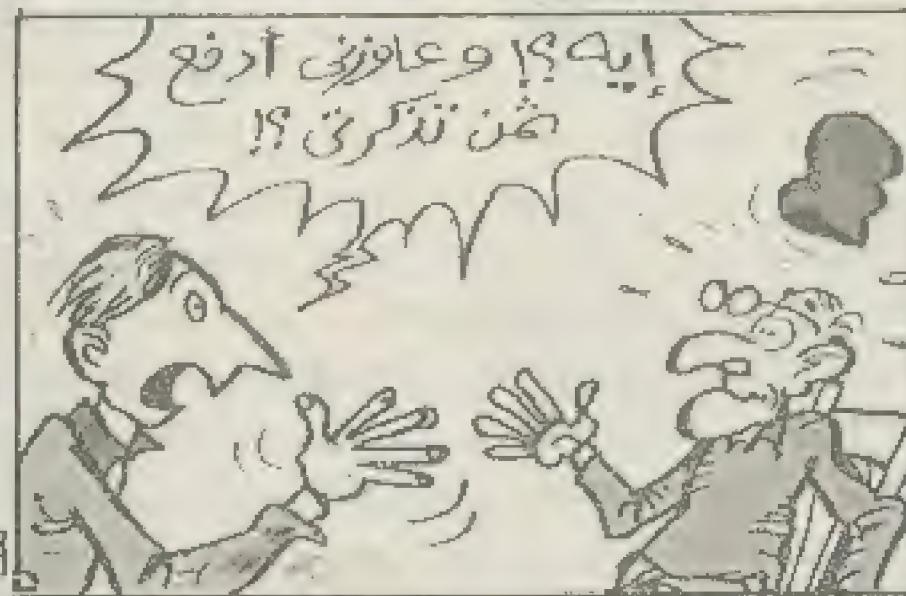 إيه ؟! وعاوزني أدفع
ثمن تذكرتي ؟!